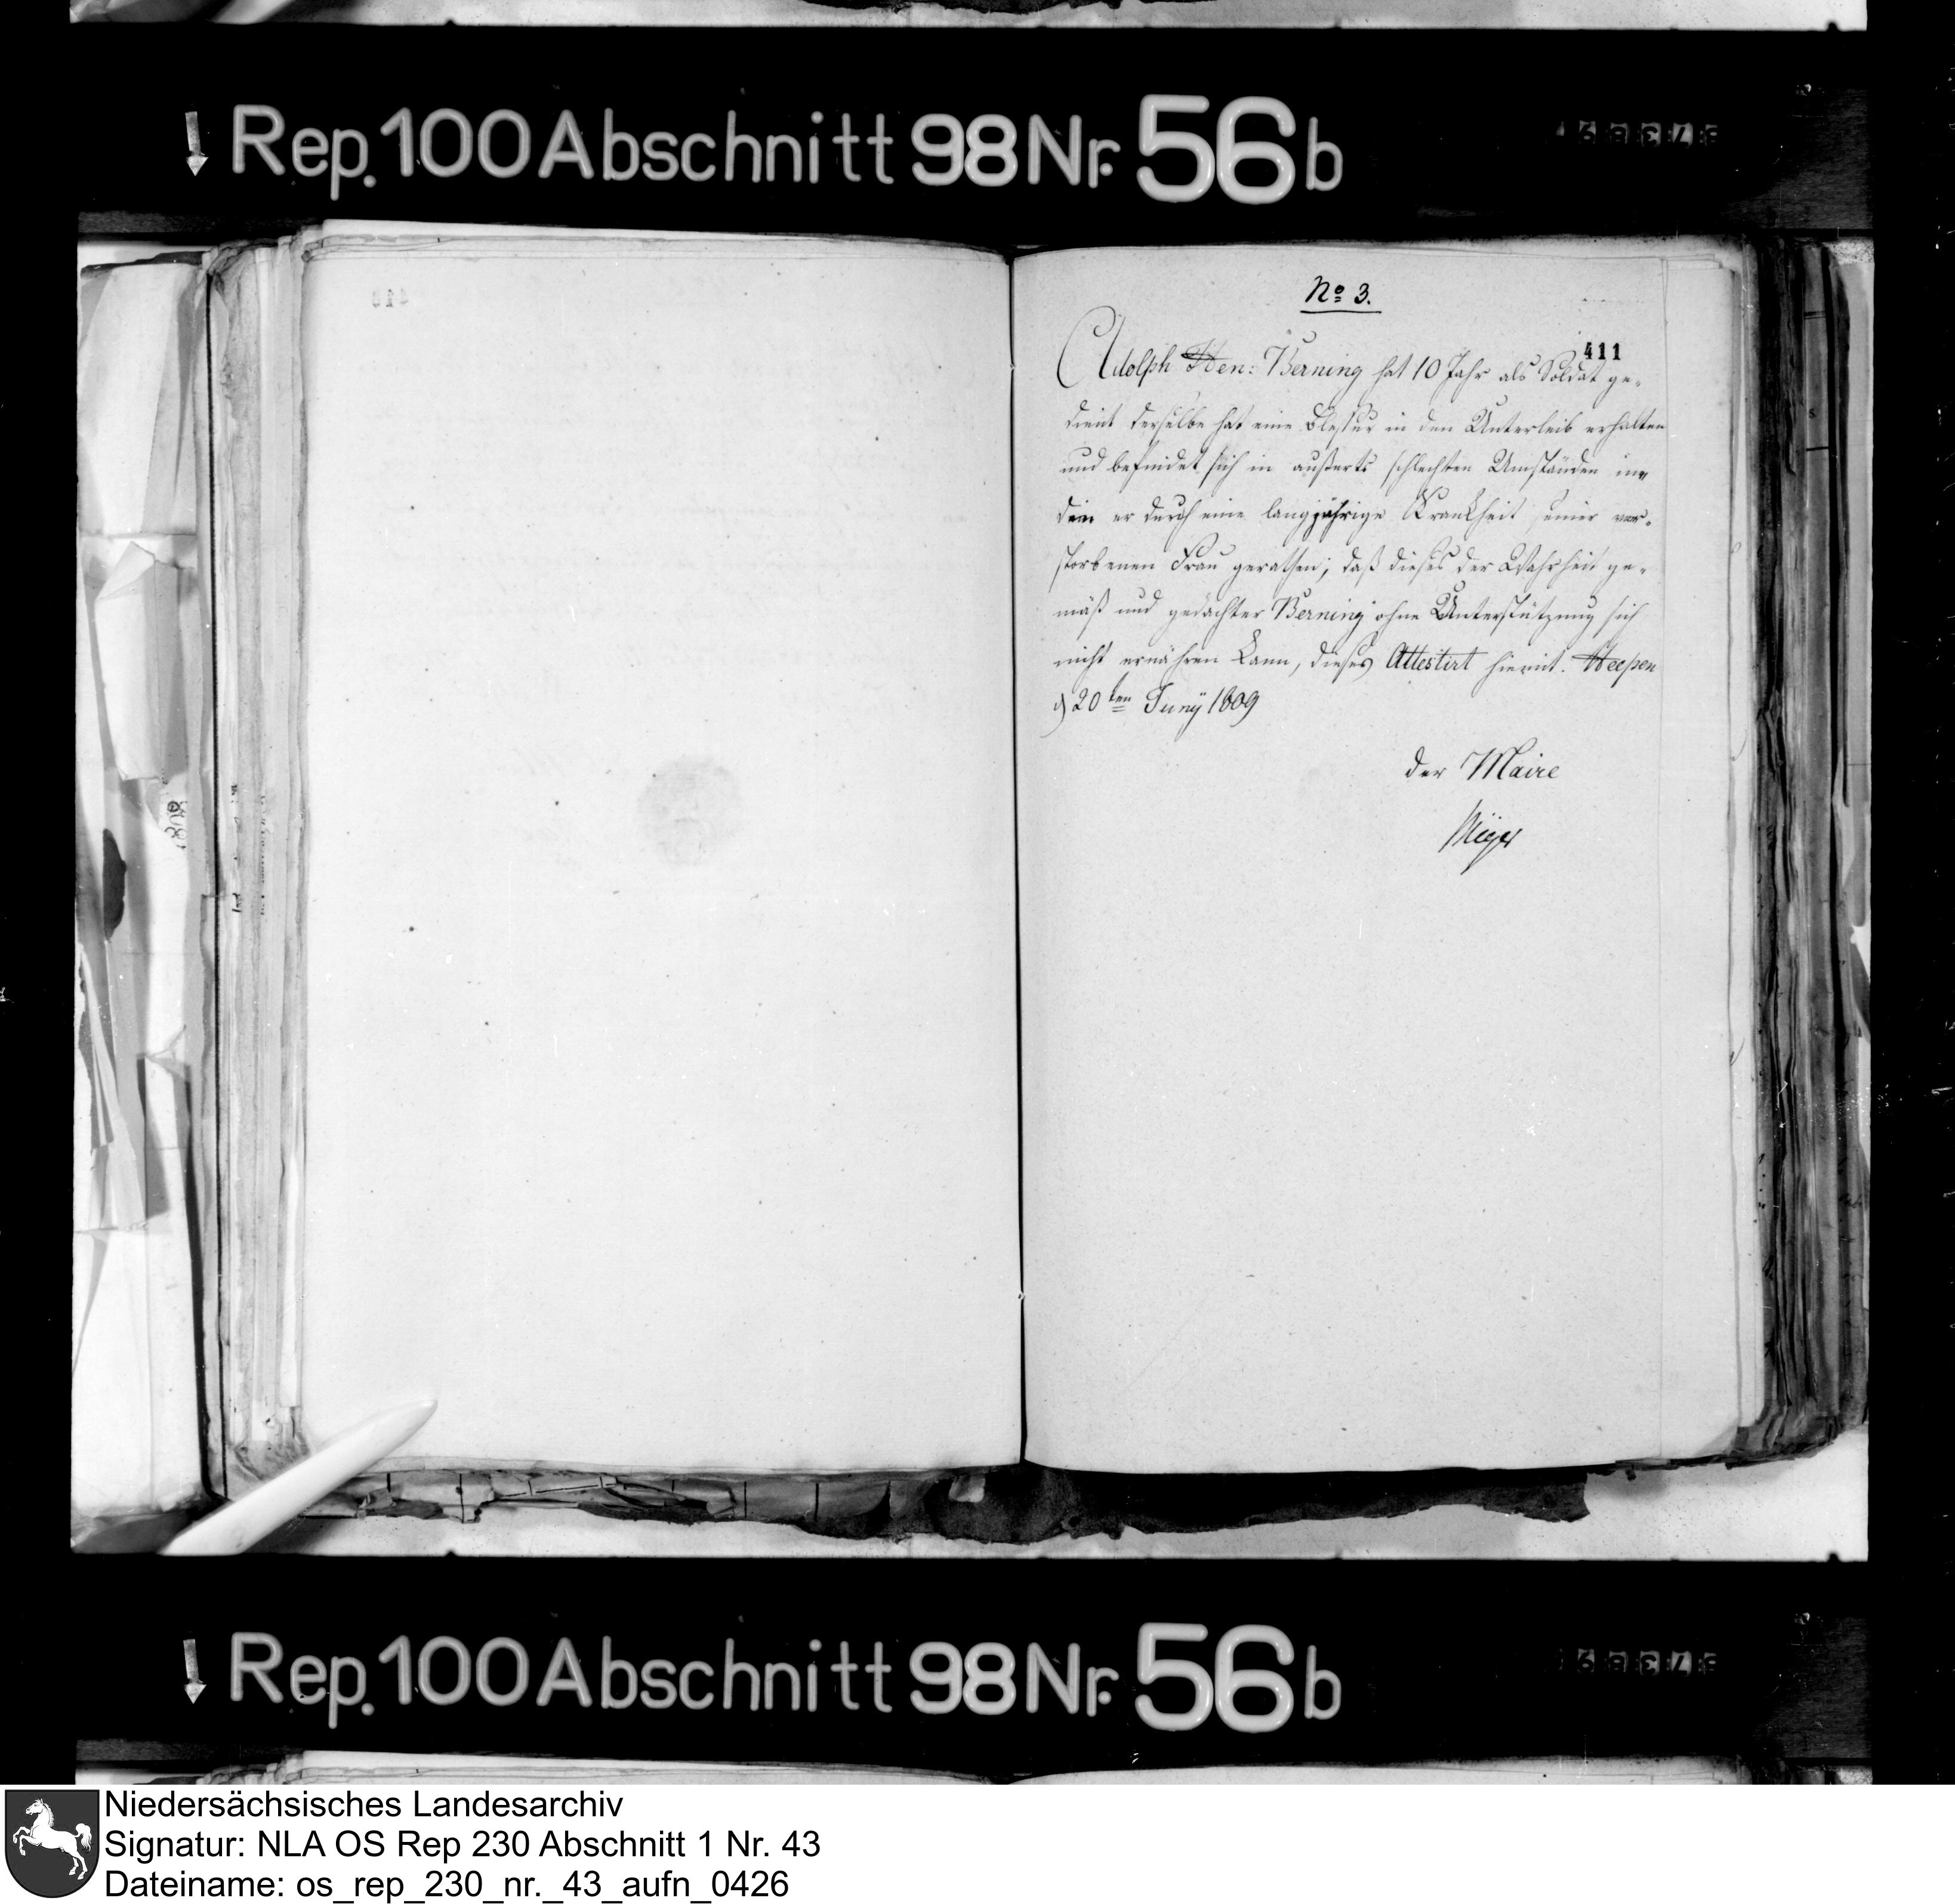 Rep. 100 Abschnitt 98 Nr. 56 b
No 3.
411
Adolph Hen: Berning hat 10 Jahr als Soldat ge-
dient derselbe hat eine Blessur in den Unterleib erhalten
und befindet sich in außerts schlechten Umständen in-
dem er durch eine langjährige Krankheit seiner ver-
storbenen Frau gerathen; daß dieses der Wahrheit ge-
mäß und gedachter Berning ohne Unterstützung sich
nicht ernähren kann, dieses Attestirt hiemit. Heepen
d 20ten Juny 1809
der Maire
Meyer
Rep. 100 Abschnitt 98 Nr. 56 b
Niedersächsisches Landesarchiv
Signatur: NLA OS Rep 230 Abschnitt 1 Nr. 43
Dateiname: os_rep_230_nr._43_aufn_0426